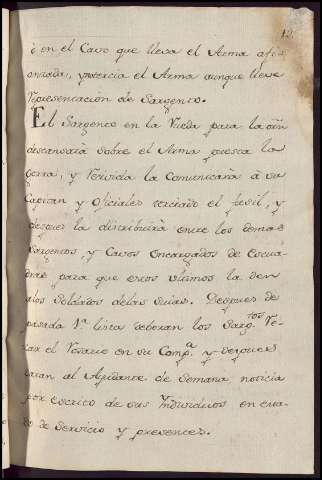 ò en el Cavo que lleva el Arma afi-
anzada, y tercia el Arma aunque lleve
Representacion de Sargento.
El Sargento en la Rueda para la orñ
descansarà sobre el Arma puesta la
Gorra, y Recivida la Comunicarà à su
Capitan y Oficiales terciado el fusil, y
despues la distribuirà entre los demas
Sargentos, y Cavos Encargados de Escua-
dras para que estos ultimos la den
alos Soldados delas suias. Despues de
pasada 1.ª lista deberan los Sarg.tos Re-
zar el Rosario en su Comp.ª y despues
daran al Ayudante de Semana noticia
por escrito de sus Yndividuos en
de Servicio y presentes.